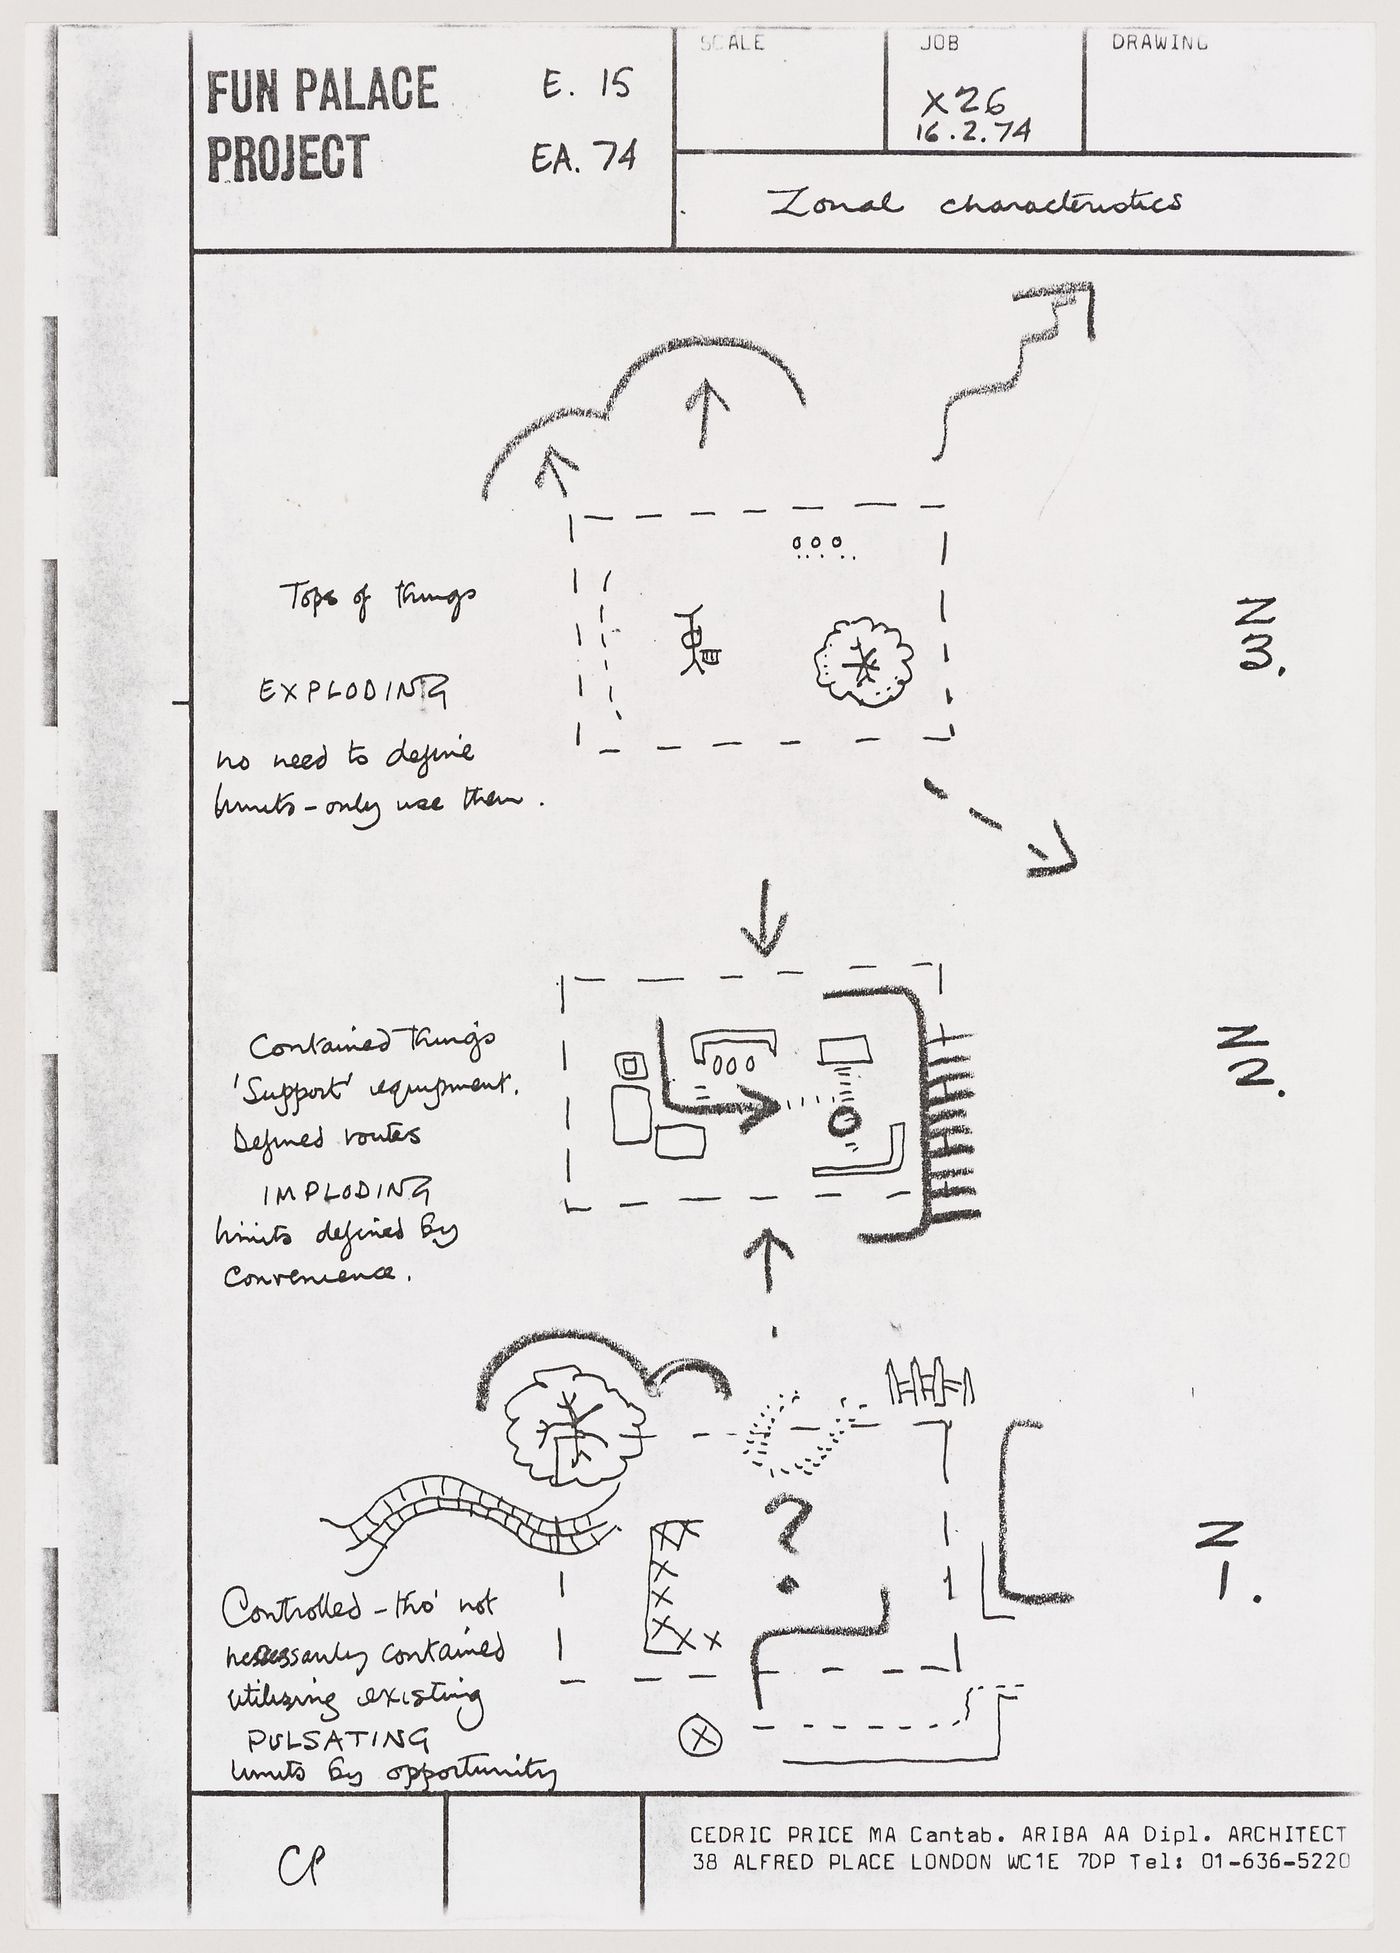 FUN PALACE
PROJECT
E. 15
EA. 74
SCALE
JOB
X26
16.2.74
DRAWING
Zonal characteristics
Tops of things
EXPLODING
no need to define
limits - only use them.
Z
3.
Contained things
'Support' equipment.
Defined routes
IMPLODING
limits defined by
convenience.
Z
2.
?
Controlled - tho' not
necessarily contained
utilizing existing
PULSATING
limits by opportunity
Z
1.
CP
CEDRIC PRICE MA Cantab. ARIBA AA Dipl. ARCHITECT
38 ALFRED PLACE LONDON WC1E 7DP Tel: 01-636-5220